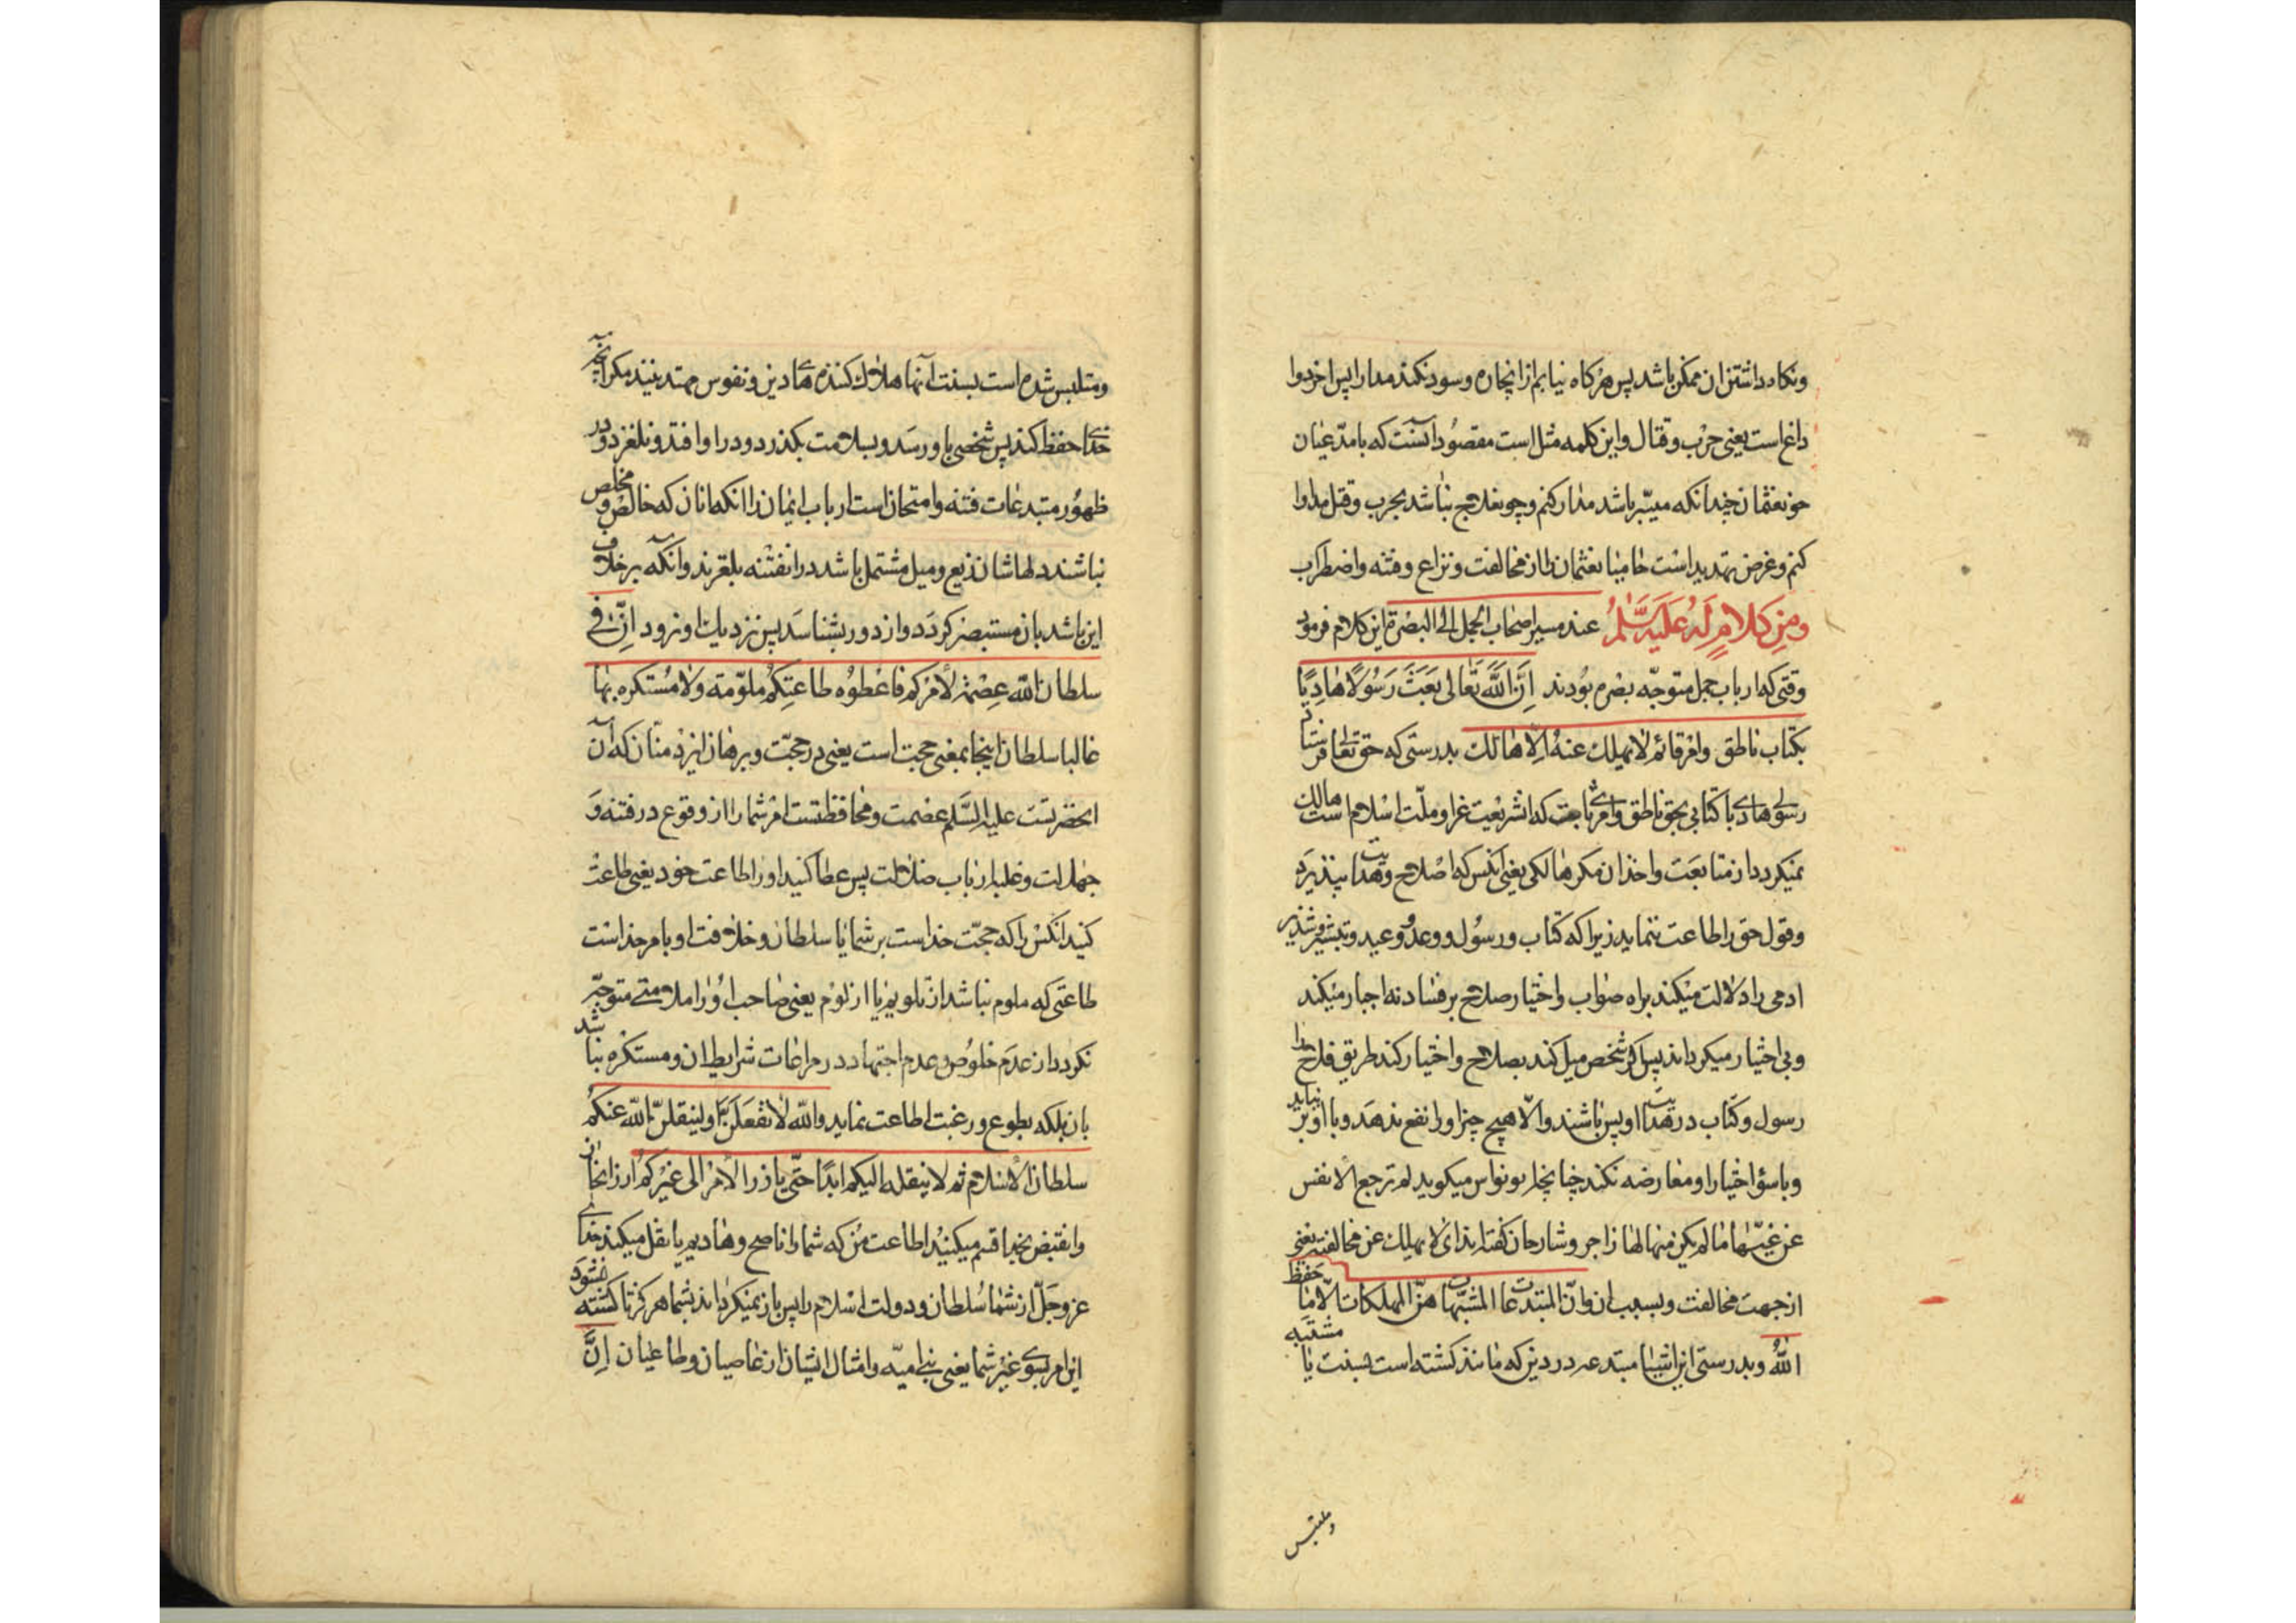 ونکاه داشتن ان ممکن باشد پس هرکاه نیابم از انچاره وسود نکند مدارا پس اخر دوا
داغ است یعنی حرب وقتال واین کلمه مثل است مقصود آنست که بامدّعیان
خون عثمان چندانکه میسّر باشد مدارا کنم وچون علاج نباشد بحرب وقتل مداوا
کنم وغرض تهدید است حامیان عثمان را از مخالفت ونزاع وفتنه واضطراب
ومن کلام له علیه السّلم عند مسیر اصحاب الجمل الی البصرة این کلام فرمود
وقتی که ارباب جمل متوجّه بصره بودند إنّ الله تعالی بَعَثَ رَسُولًا هَادِیًا
بکتاب ناطق وامر قائم لا یهلک عنه الا هالک بدرستی که حق تعالی فرستاد
رسولی هادی با کتابی بحق ناطق وامری ثابت که ان شریعت غرا وملّت اسلام است هالک
نمیکردد از متابعت واخذ ان مکر هالکی یعنی انکس که اصلاح وهدایت نپذیرد
وقول حق را اطاعت ننماید زیرا که کتاب ورسول ووعد ووعید وتبشیر وتنذیر
ادمی را دلالت میکند براه صواب واختیار صلاح بر فساد نه اجبار میکند
وبی اختیار میکرداند پس اکر شخص میل کند بصلاح واختیار کند طریق فلاح را
رسول وکتاب در هدایت او بس باشند والّا هیچ چیز او را نفع ندهد وبا او بر نیاید
وبا سؤ اختیار او معارضه نکند چنانچه ابونواس میکوید لم ترجع الانفس
عن غیّها ما لم یکن منها لها زاجر وشارحان کفته‌اند ای لا یهلک عن مخالفته یعنی
از جهت مخالفت وبسبب ان وانّ المبتدعات المشبّهات هنّ المهلکات الّا ما حفظ
اللهُ وبدرستی این اشیا مبتدعه در دین که مانند کشته است بسنت یا مشتبه
وملتبس
ومتلبس شده است بسنت آنها هلاک کننده‌های دین ونفوس مهتدینند مکر آنچه
خدای حفظ کند پس شخصی باو رسد وبسلامت بکذرد ودر او افتد ونلغزد ودر
ظهور مبتدعات فتنه وامتحان است ارباب ایمان را انکه انان که خالص ومخلص
نباشند دلهاشان زیغ ومیل مشتمل باشد در ان فتنه بلغزند وانکه بر خلاف
این باشد بان مستبصر کردد واز دور بشناسد پس نزدیک او نرود انّ فی
سلطان الله عصمة لامرکم فاعطوه طاعتکم غیر ملوّمة ولا مستکره بها
غالبا سلطان اینجا بمعنی حجت است یعنی در حجّت وبرهان ایزد منّان که آن
انحضرتست علیه السّلم عصمت ومحافظتست امر شما را از وقوع در فتنه و
جهالت وغلبه ارباب ضلالت پس عطا کنید او را طاعت خود یعنی طاعت
کنید انکس را که حجّت خداست بر شما یا سلطان وخلافت او بامر خداست
طاعتی که ملوم نباشد از تلویم یا از لوم یعنی صاحب او را ملامتی متوجّه
نکردد از عدم خلوص وعدم اجتهاد در مراعات شرایط ان ومستکره نباشد
بان بلکه بطوع ورغبت اطاعت نماید والله لتفعلنّ او لینقلنّ الله عنکم
سلطان الاسلام ثم لا ینقله الیکم ابدًا حتّی یارز الامر الی غیرکم ارز انحاز
وانقبض بخدا قسم میکنید اطاعت من که شما را ناصح وهادیم یا نقل میکند خدای
عزوجلّ از شما سلطان ودولت اسلام را پس باز نمیکرداند بشما هرکز تا کشته نشود
این امر بسوی غیر شما یعنی بنی امیّه وامثال ایشان از عاصیان وطاغیان اِنَّ